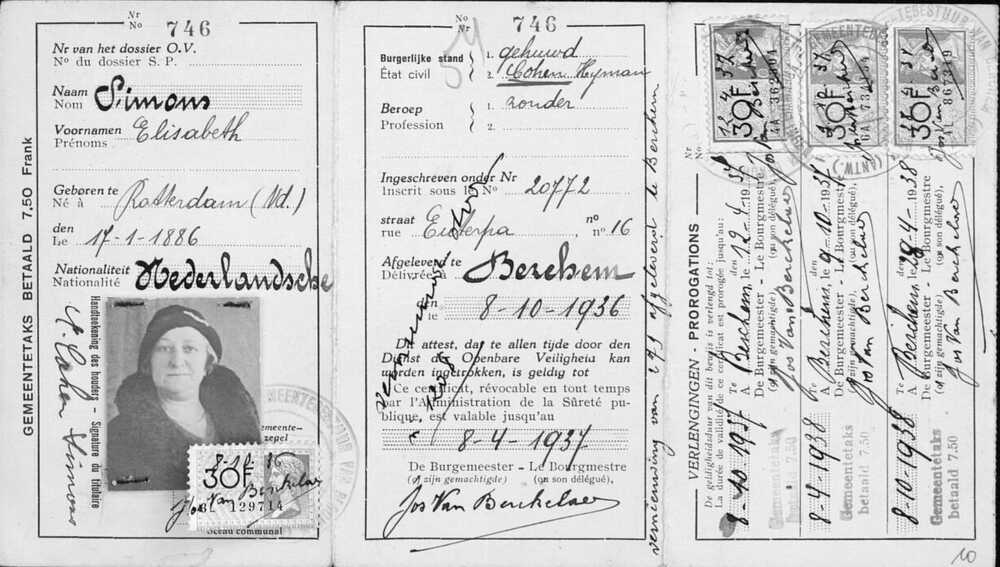 Nr
No 746
Nr van het dossier O.V.
No du dossier S. P.
Naam
Nom Simons
Voornamen
Prénoms Elisabeth
Geboren te
Né à Rotterdam (Nd.)
den
Le 17-1-1886
Nationaliteit
Nationalité Nederlandsche
GEMEENTETAKS BETAALD 7,50 Frank
Handteekening des houders - Signature du titulaire
E. Cohen Simons
Gemeente-
zegel
8-10-36
30F
Jos Van Berckelaer
129714
Sceau communal
No
No 746
Burgerlijke stand
État civil
1. gehuwd
2. Cohen Heyman
Beroep
Profession
1. zonder
2.
Ingeschreven onder Nr
Inscrit sous le No 20772
straat
rue Euterpa no 16
Afgeleverd te
Délivrée à Berchem
den
le 8-10-1936
Dit attest, dat te allen tijde door den
Dienst der Openbare Veiligheid kan
worden ingetrokken, is geldig tot
Ce certificat, révocable en tout temps
par l'Administration de la Sûreté pu-
blique, est valable jusqu'au
8-4-1937
De Burgemeester - Le Bourgmestre
(of zijn gemachtigde) (ou son délégué),
Jos Van Berckelaer
vernieuwing van afgeleverd te Berchem
Nr
No
VERLENGINGEN - PROROGATIONS
De geldigheidsduur van dit bewijs is verlengd tot:
La durée de validité de ce certificat est prorogée jusqu'au:
8-10-1937
A Berchem, den le 12-4-1937
De Burgemeester - Le Bourgmestre
(of zijn gemachtigde) (ou son délégué),
Jos Van Berckelaer
30F
Gemeentetaks
7.50
8-4-1938
Berchem, den le 9-10-1937
De Burgemeester - Le Bourgmestre
(of zijn gemachtigde) (ou son délégué),
Jos Van Berckelaer
30F
Gemeentetaks
betaald 7.50
8-10-1938
A Berchem, den le 4-1938
De Burgemeester - Le Bourgmestre
(of zijn gemachtigde) (ou son délégué),
Jos Van Berckelaer
30F
867319
Gemeentetaks
betaald 7.50
(ANTW.)
10